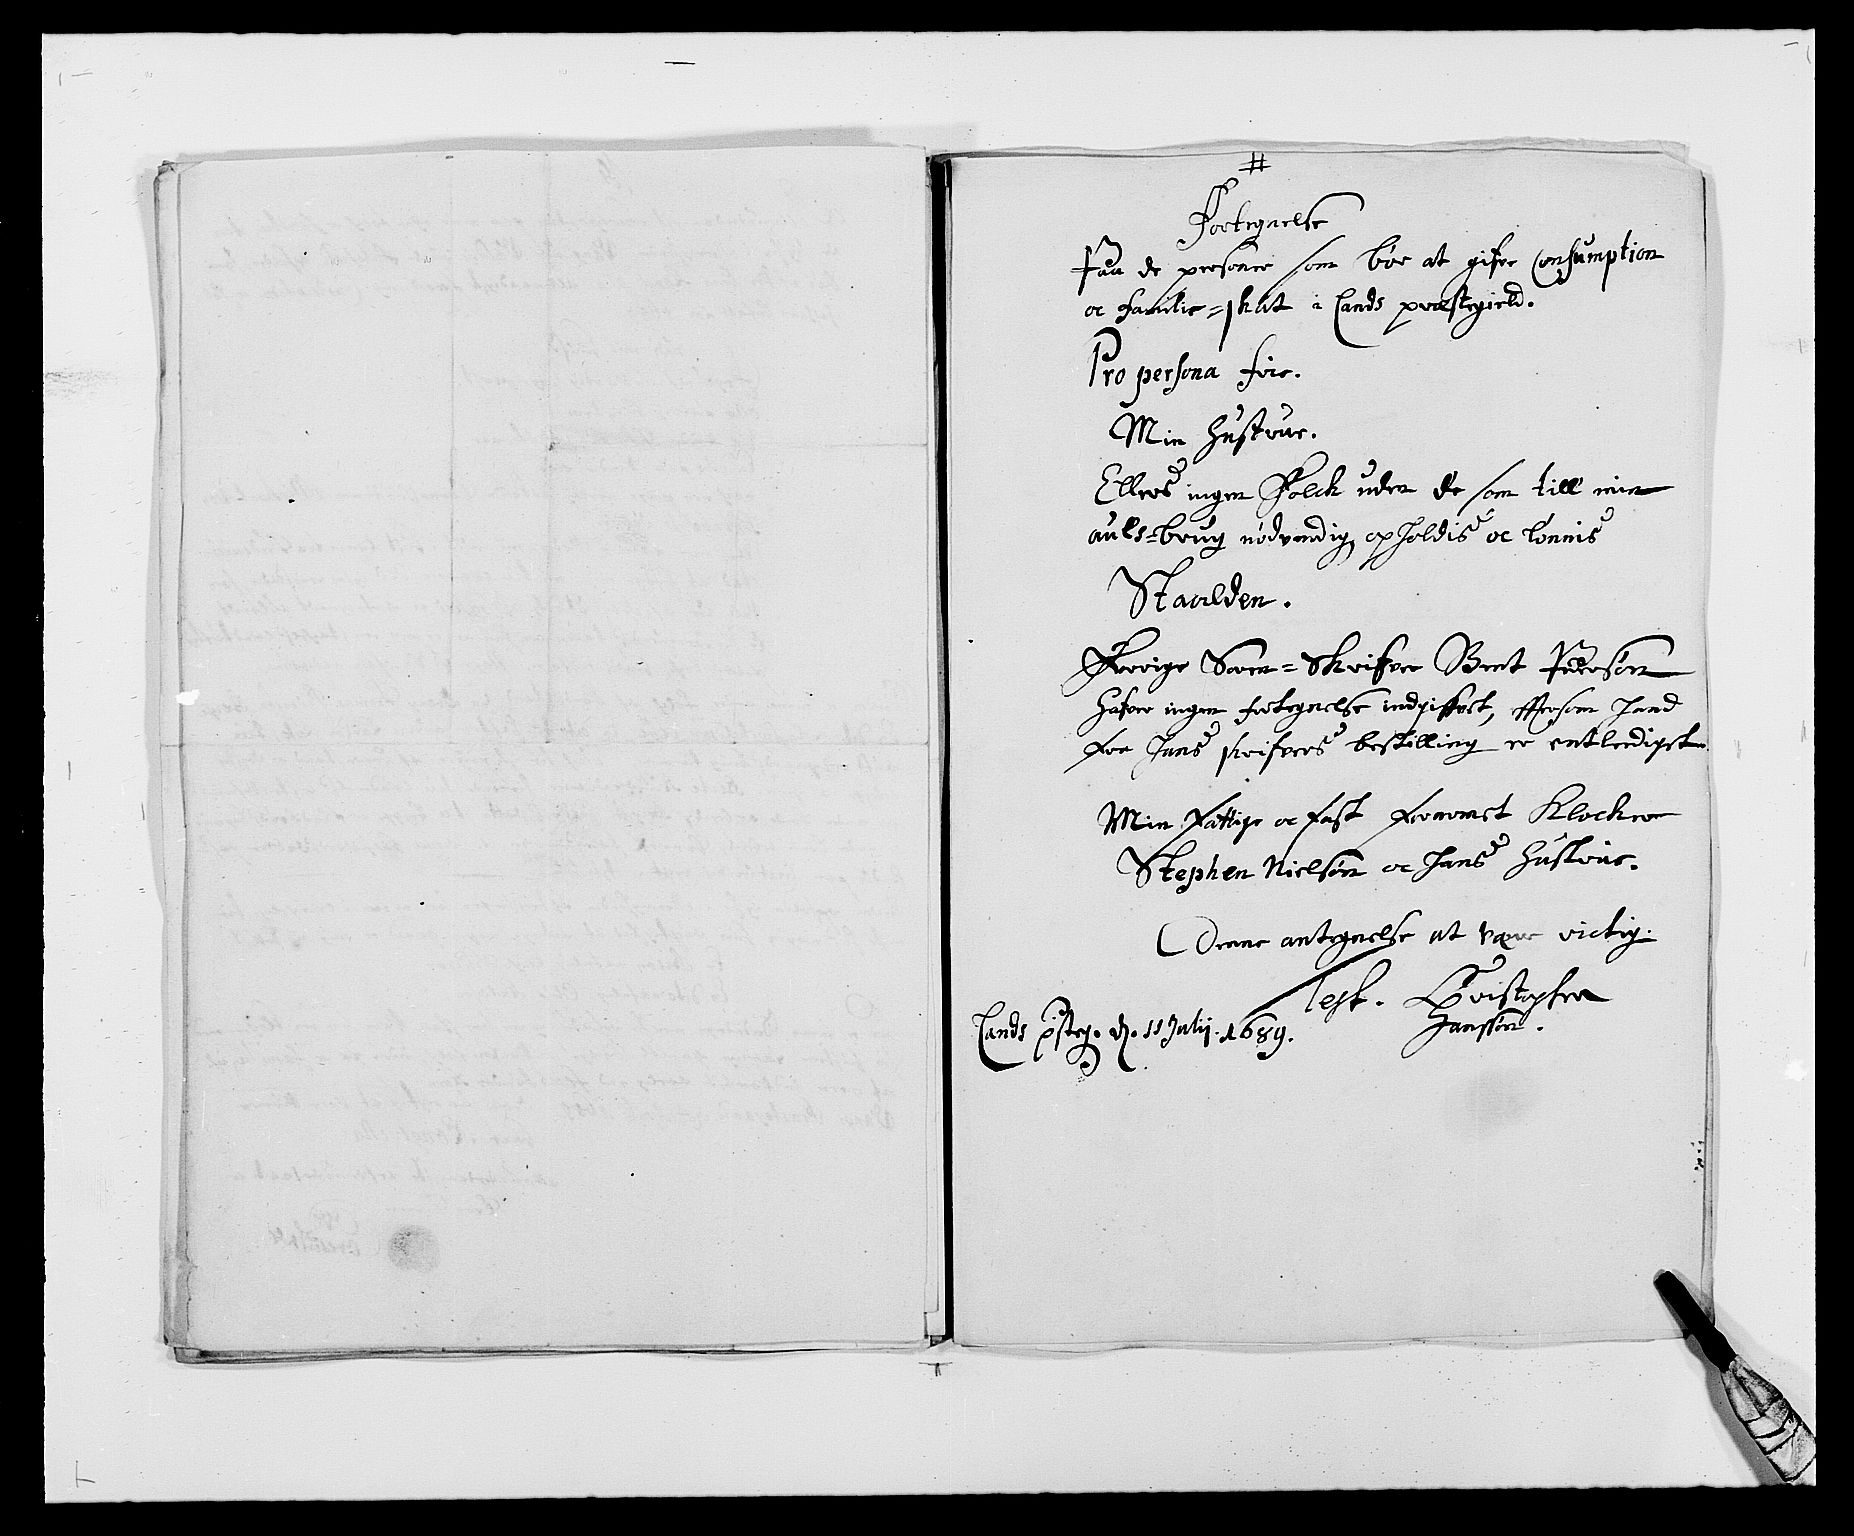 #
Fortegnelse
Paa de personer som bør at gifve Consumption
oc familie-skat i Lands præstegield.
Pro persona fire.
Min Hustrue.
Ellers ingen Folck uden de som till min
auls-brug nødvendig opholdis oc lønnis
Forige Soren-Skrifver Bent Pedersøn
hafver ingen fortegnelse indgifvet, eftersom hand
fra hans skrifvers bestilling er entledigst
Min fattige oc fast forarmet Klocker
Stephen Nielsøn oc hans Hustrue.
Denne antegnelse at være rictig.
Test. Christopher
Hanssøn.
Lands psteg. d. 11 Julij. 1689.